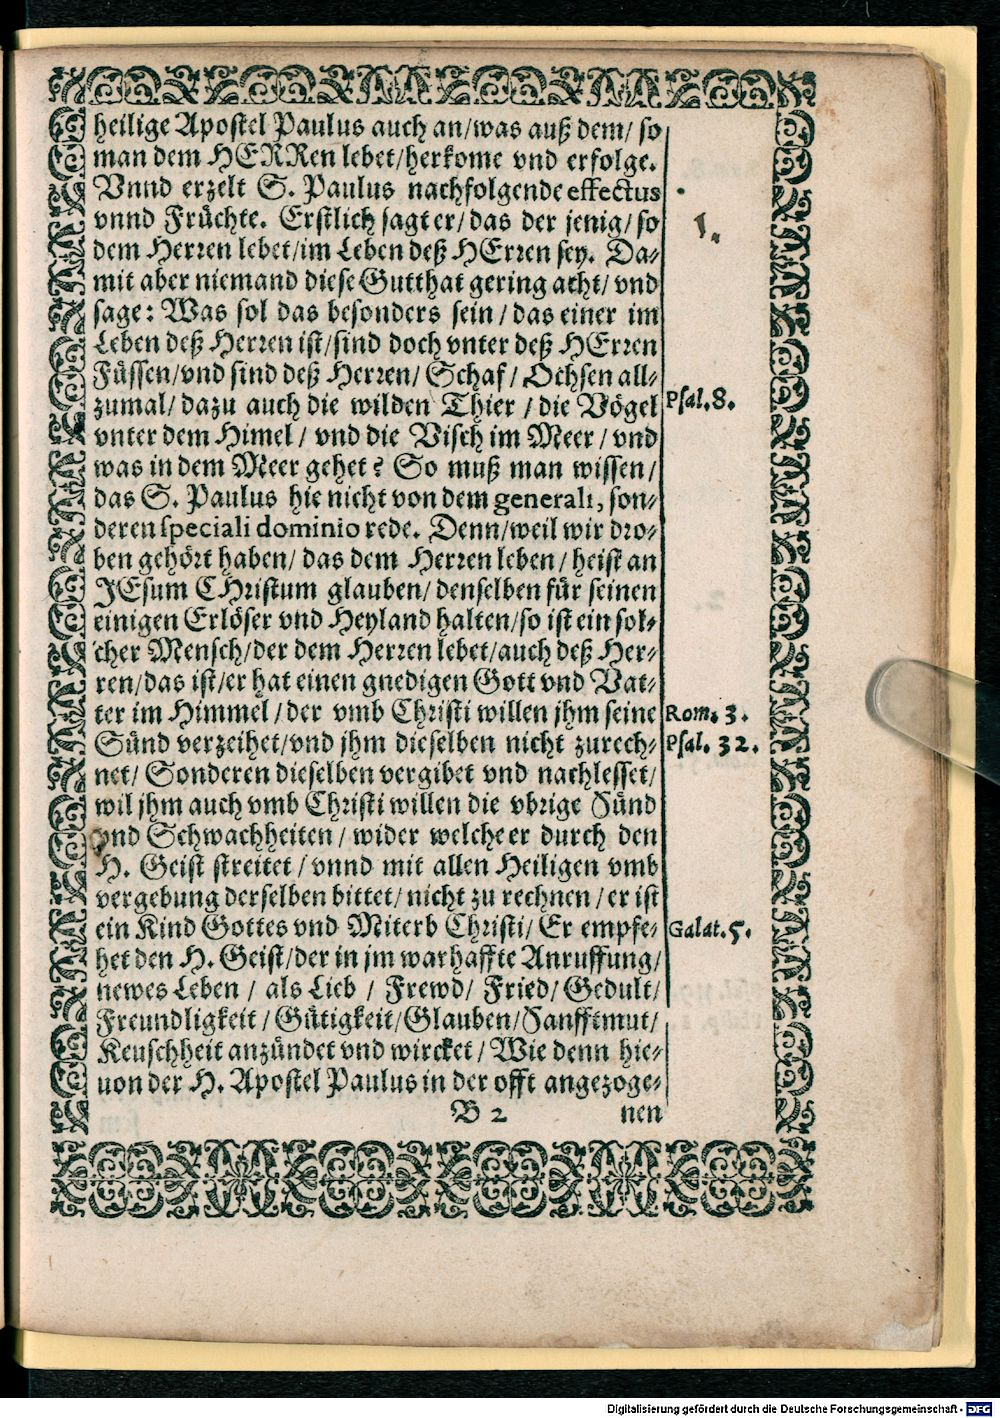 heilige Apostel Paulus auch an/was auß dem/ so
man dem HERRen lebet/herkome vnd erfolge.
Vnnd erzelt S. Paulus nachfolgende effectus
vnnd Früchte. Erstlich sagt er/ das der jenig/ so
1.
dem Herren lebet/im Leben deß HErren sey. Da-
mit aber niemand diese Gutthat gering acht/ vnd
sage: Was sol das besonders sein / das einer im
Leben deß Herren ist/sind doch vnter deß HErren
Füssen/vnd sind deß Herren/ Schaf / Ochsen all-
zumal/ dazu auch die wilden Thier / die Vögel
Psal.8.
vnter dem Himel / vnd die Visch im Meer / vnd
was in dem Meer gehet? So muß man wissen/
das S. Paulus hie nicht von dem generali, son-
deren speciali dominio rede. Denn/weil wir dro-
ben gehört haben/ das dem Herren leben/ heist an
JEsum CHristum glauben/ denselben für seinen
einigen Erlöser vnd Heyland halten/so ist ein sol-
cher Mensch/der dem Herren lebet/auch deß Her-
ren/das ist/er hat einen gnedigen Gott vnd Vat-
ter im Himmel / der vmb Christi willen jhm seine
Rom. 3.
Sünd verzeihet/vnd jhm dieselben nicht zurech-
Psal. 32.
net/ Sonderen dieselben vergibet vnd nachlesset/
wil jhm auch vmb Christi willen die vbrige Sünd
vnd Schwachheiten / wider welche er durch den
H. Geist streitet / vnnd mit allen Heiligen vmb
vergebung derselben bittet/ nicht zu rechnen / er ist
ein Kind Gottes vnd Miterb Christi/ Er empfe-
Galat.5.
het den H. Geist/der in jm warhaffte Anruffung/
newes Leben / als Lieb / Frewd/ Fried/ Gedult/
Freundligkeit / Gütigkeit/Glauben/Sanfftmut/
Keuschheit anzündet vnd wircket / Wie denn hie-
uon der H. Apostel Paulus in der offt angezoge-
B 2 nen
Digitalisierung gefördert durch die Deutsche Forschungsgemeinschaft - DFG